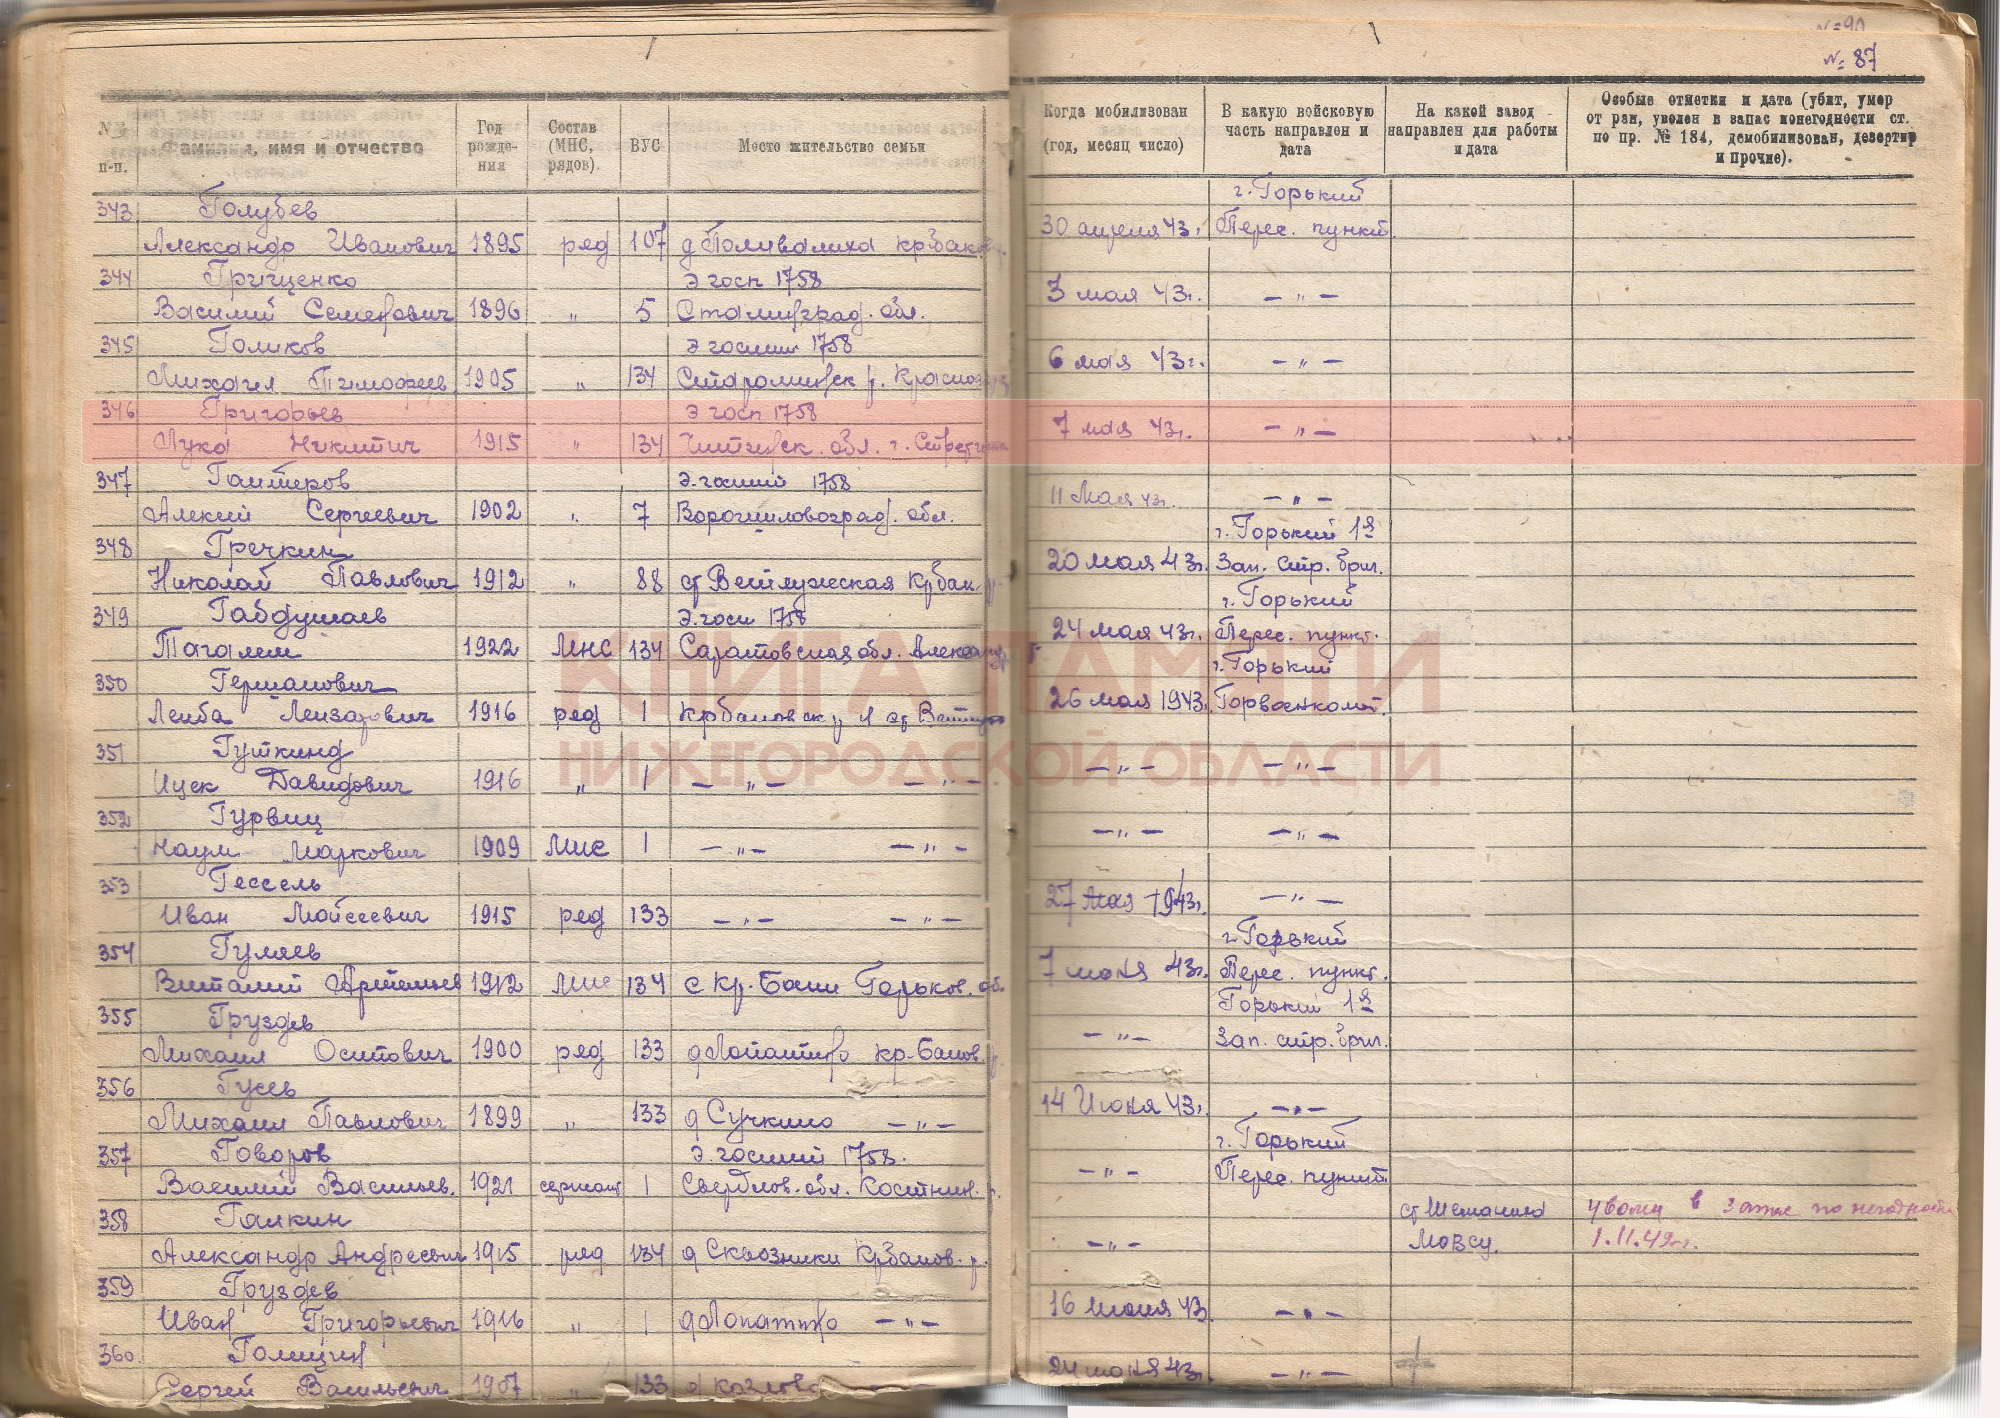 № 90
№ 87
№№ п-п.
Фамилия, имя и отчество
Год рождения
Состав (МНС, рядов).
ВУС
Место жительство семьи
Когда мобилизован (год, месяц число)
В какую войсковую часть направлен и дата
На какой завод направлен для работы и дата
Особые отметки и дата (убит, умер от ран, уволен в запас по негодности ст. по пр. № 184, демобилизован, дезертир и прочие).
343 Голубев г. Горький
Александр Иванович 1895 ряд 107 д Поливалиха 30 апреля 43г. Перес. пункт
344 Грищенко Э госп 1758
Василий Семенович 1896 " 5 Сталинград. обл. 3 мая 43г. — " —
345 Голиков Э госпит 1758
Михаил Тимофеев 1905 " 134 6 мая 43г. — " —
346 Григорьев Э госп 1758
Лука Никитич 1915 " 134 Читинск. обл. г. 7 мая 43г. — " —
347 Гантеров Э. госпит 1758
Алексей Сергеевич 1902 " 7 Ворошиловоград. обл. 11 Мая 43г. — " —
348 Гречкин г. Горький 1я
Николай Павлович 1912 " 88 ст Ветлужская Крбак. 20 мая 43г. Зап. стр. бриг.
349 Габдушаев Э. госп 1758 г. Горький
Тагалим 1922 МНС 134 Саратовская обл. 24 мая 43г. Перес. пункт.
350 Германович г. Горький
Лейба Лейзарович 1916 ряд 1 26 мая 1943г. Горвоенкомат.
КНИГА ПАМЯТИ
351 Гуткинд
Ицек Давидович 1916 " 1 — " — — " — — " — — " —
НИЖЕГОРОДСКОЙ ОБЛАСТИ
352 Гурвиц
Наум Маркович 1909 МНС 1 — " — — " — — " — — " —
353 Гессель
Иван Мойсеевич 1915 ряд 133 — " — — " — 27 мая 1943г. — " —
354 Гуляев г. Горький
Виталий Артемьев 1912 МНС 134 с Кр. Баки Горьков. об. 7 июня 43г. Перес. пункт.
355 Груздев Горький 1я
Михаил Осипович 1900 ряд 133 д Лопатино кр-Баков. — " — Зап. стр. бриг.
356 Гусев
Михаил Павлович 1899 " 133 д Сучкино — " — 14 Июня 43г. — " —
357 Говоров Э. госпит 1758. г. Горький
Василий Васильев. 1921 сержант 1 Свердлов. обл. — " — Перес. пункт.
358 Галкин ст Шеманино уволен в запас по негодности
Александр Андреевич 1915 ряд 134 д Сквозники Крбаков. р. — " — 1.11.42г.
359 Груздев
Иван Григорьевич 1916 " 1 д Лопатино — " — 16 июня 43г. — " —
360. Голицин
Сергей Васильевич 1907 " 133 д козлово 24 июня 43г. — " —